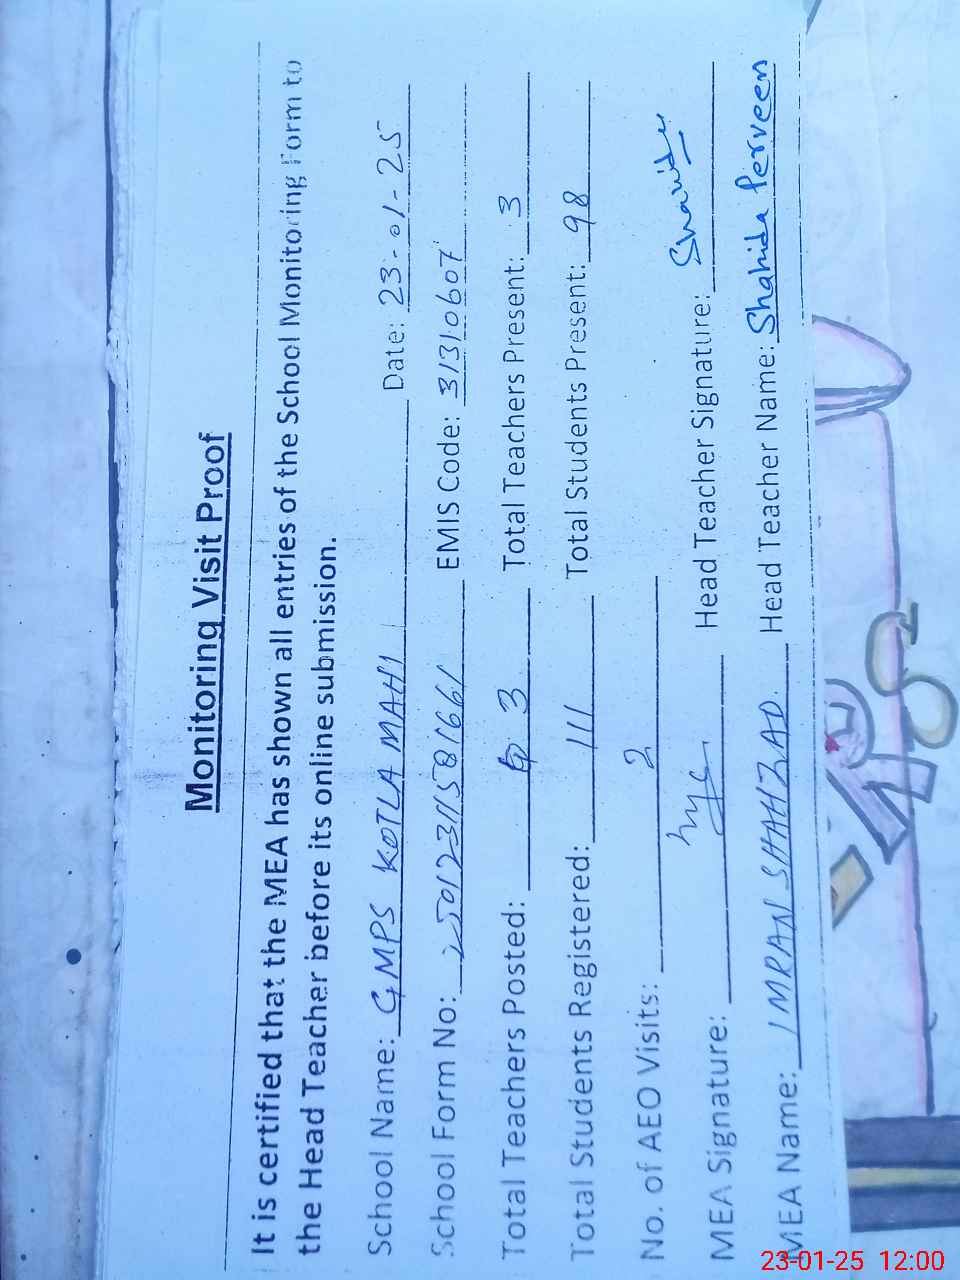 Monitoring Visit Proof
It is certified that the MEA has shown all entries of the School Monitoring Form to
the Head Teacher before its online submission.
School Name: GMPS KOTLA MAHI Date: 23-01-25
School Form No: 25012311581661 EMIS Code: 31310607
Total Teachers Posted: 3 Total Teachers Present: 3
Total Students Registered: 111 Total Students Present: 98
No. of AEO Visits: 2
MEA Signature: Head Teacher Signature: Shahida
MEA Name: IMRAN SHAHZAD Head Teacher Name: Shahida Perveen
23-01-25 12:00